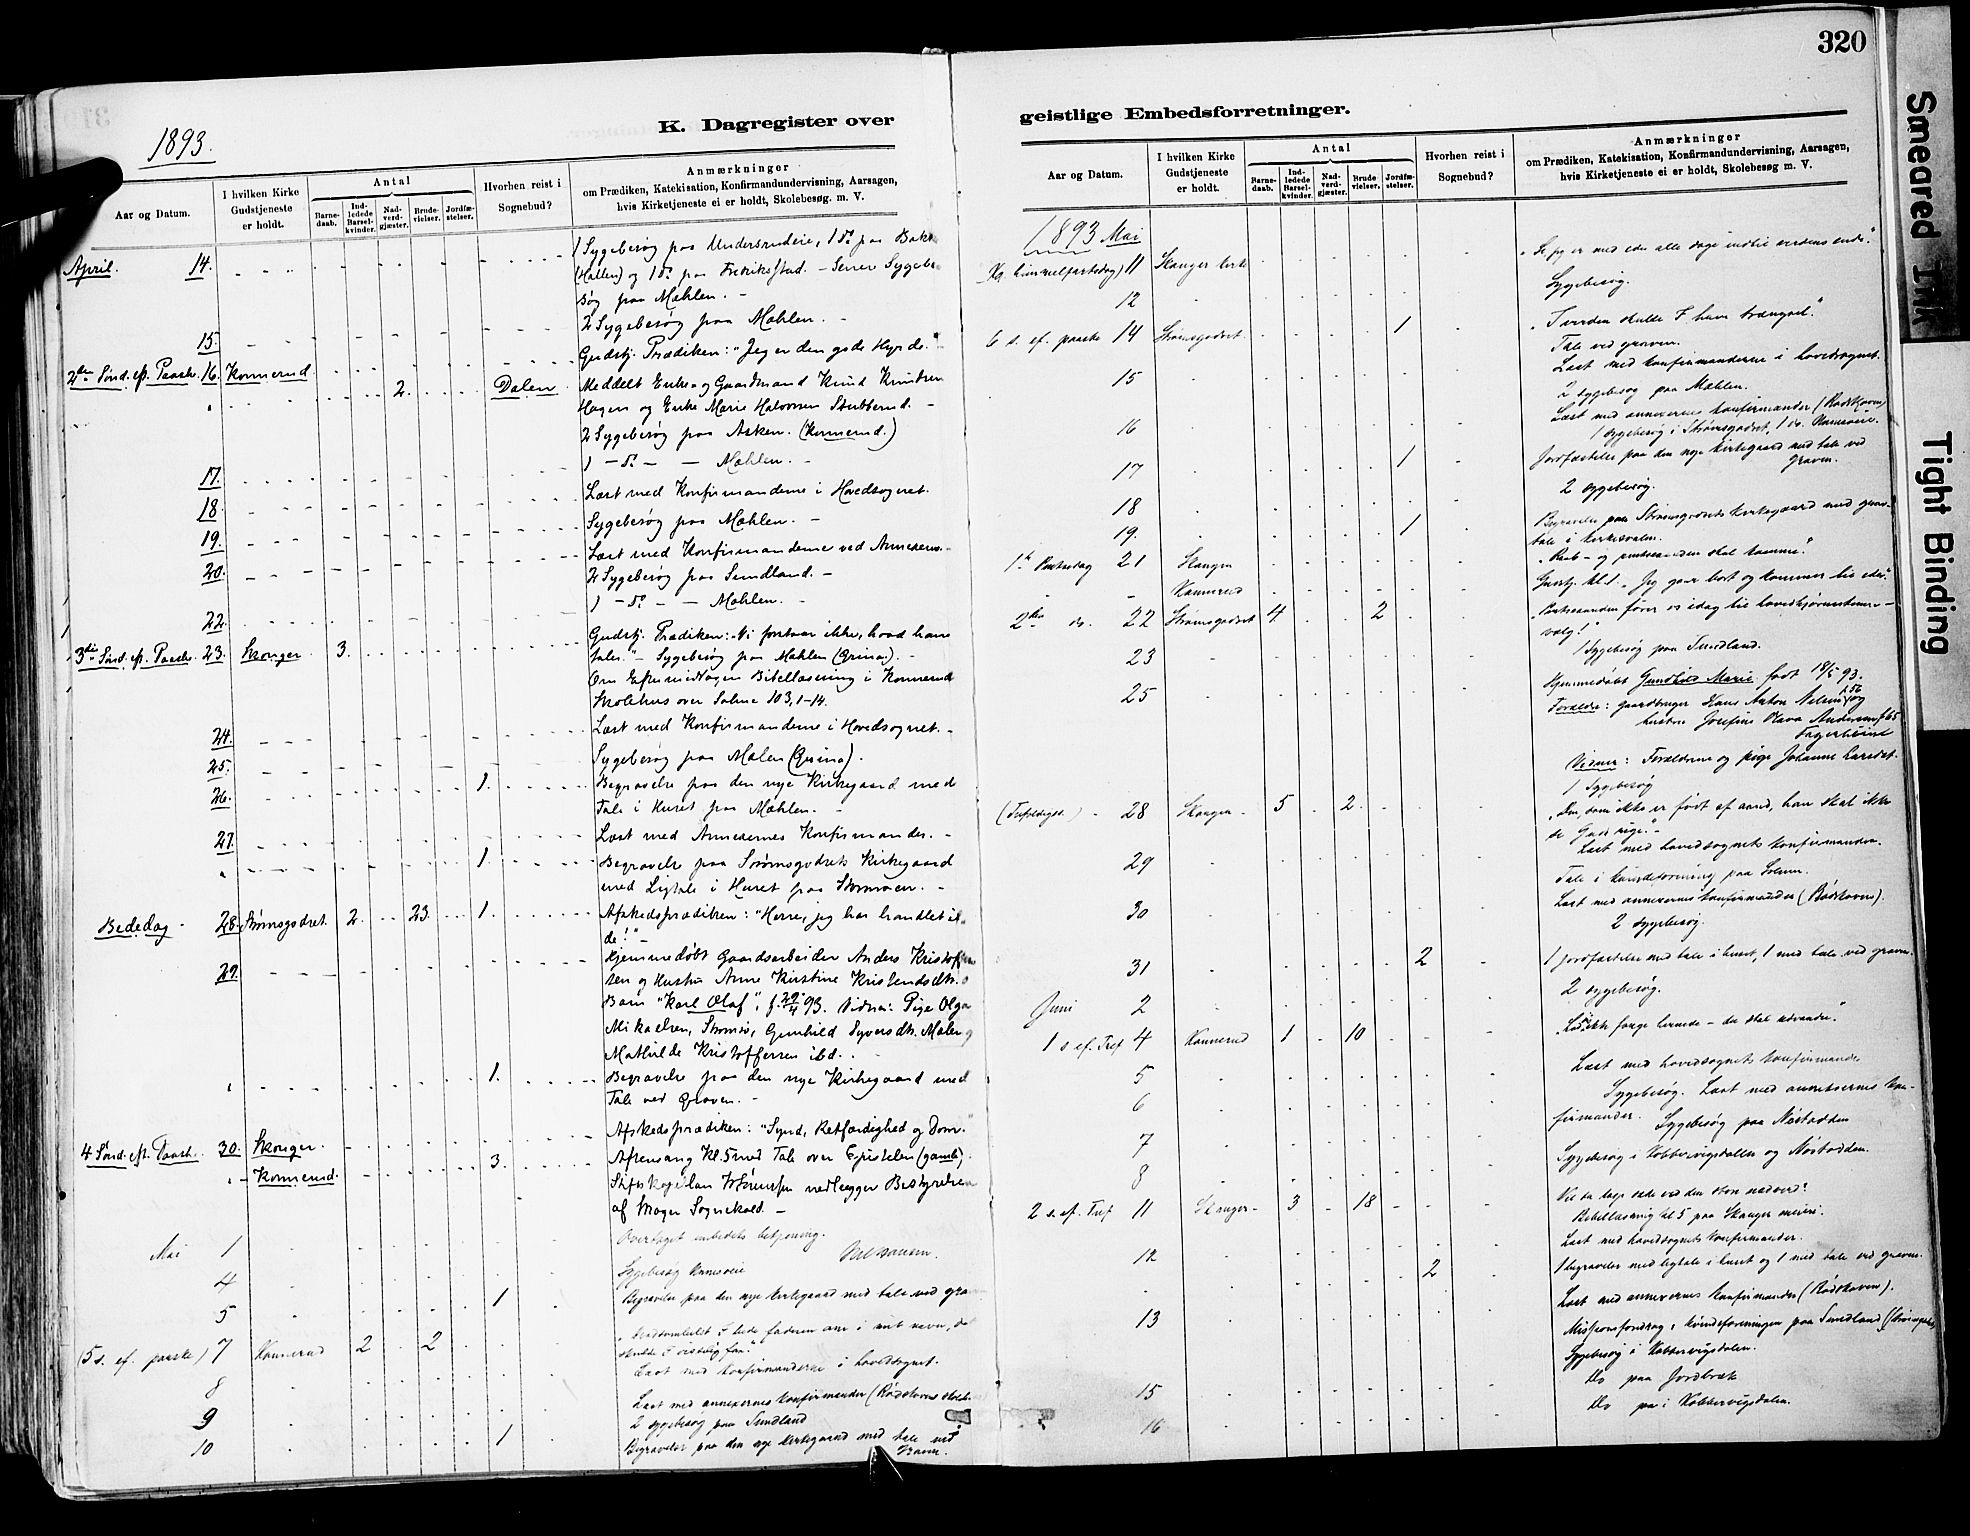 320
Smeared Ink
Tight Binding
1893.
K. Dagregister over
Aar og Datum.
I hvilken Kirke
Gudstjeneste
er holdt.
Antal
Barne-
daab.
Ind-
ledede
Barsel-
kvinder.
Nad-
verd-
gjæster.
Brude-
vielser.
Jordfæ-
stelser.
Hvorhen reist i
Sognebud?
Anmærkninger
om Prædiken, Katekisation, Konfirmandundervisning, Aarsagen,
hvis Kirketjeneste ei er holdt, Skolebesøg. m. V.
April. 14.
(Hallen) og 1 do. paa Fredriksstad. - Senere Sygebe-
søg paa Mæhlen. -
15. 2 Sygebesøg paa Mæhlen. -
2den Sønd. eft. Paaske. 16. Konnerud Gudstj. Prædiken: "Jeg er den gode Hyrde."
2. Dalen. Meddelt Enke- og Gaardmand Knud Knudsen
Hagen og Enke Marie Halvorsen Stubberud. -
2 Sygebesøg paa Asken. (Konnerud.)
17. 1 - do. - - Mæhlen. -
18. Læst med Konfirmanderne i Hovedsognet.
19. Sygebesøg paa Mæhlen. -
20. Læst med Konfirmanderne ved Annexerne.
2 Sygebesøg paa Sundland. -
22. 1 - do. - - Mæhlen. -
3die Sønd. eft. Paaske. 23. Skoger 3. Gudstj. Prædiken: "Vi forstaar ikke, hvad han
taler." - Sygebesøg paa Mæhlen (Grina). -
Om Eftermiddagen Bibellæsning i Konnerud
Skolehus over Salme 103, 1-14.
24. Læst med Konfirmanderne i Hovedsognet. -
25. Sygebesøg paa Mælen (Grina).
26. 1. Begravelse paa den nye Kirkegaard med
Tale i Huset paa Mæhlen. -
27. Læst med Annexernes Konfirmander. -
1. Begravelse paa Strømsgodsets Kirkegaard
med Ligtale i Huset paa Strømsøen. -
Bededag - 28. Strømsgodset. 2. 23. 1. Afskedsprædiken: "Herre, jeg har handlet il-
de!" -
29. Hjemmedøbt Gaardsarbeider Anders Kristoffer-
sen og Hustru Anne Kirstine Kristensdtr.s
Barn "Karl Olaf", f. 29/4 93. Vidner: Pige Olga
Mikaelsen, Strømsø, Gunhild Syversdtr. Mælen og
Mathilde Kristoffersen ibd. -
1. Begravelse paa den nye Kirkegaard med
Tale ved Graven. -
4 Sønd. eft. Paaske. 30. Skoger Afskedsprædiken: "Synd, Retfærdighed og Dom."
Konnerud. 3. Aftensang Kl. 5 med Tale over Epistelen (gamle).
Stiftskapellan nedlægger Bestyrelsen
af Skoger Sognekald. -
Mai 1 Overtaget embedets betjening.
4 Sygebesøg
5 1 Begravelse paa den nye kirkegaard med tale ved graven
(5 s. ef. paaske) 7 Konnerud 2 2 bede faderen om i mit navn, det
8 Læst med konfirmanderne i hovedsognet.
9 Læst med annexernes konfirmander
2 sygebesøg paa Sundland
10 1 Begravelse paa den nye kirkegaard med tale ved
Graven.
geistlige Embedsforretninger.
Aar og Datum.
I hvilken Kirke
Gudstjeneste
er holdt.
Antal
Barne-
daab.
Ind-
ledede
Barsel-
kvinder.
Nad-
verd-
gjæster.
Brude
vielser.
Jordfæ-
stelser.
Hvorhen reist i
Sognebud?
Anmærkninger
om Prædiken, Katekisation, Konfirmandundervisning, Aarsagen,
hvis Kirketjeneste ei er holdt, Skolebesøg. m. V.
1893 Mai
Kr. himmelfartsdag) 11 Skoger kirke "Se jeg er med eder alle dage indtil verdens ende."
12 Sygebesøg.
6 s. ef. paaske 14 Strømsgodset 1 "I verden skulde I have trængsel."
Tale ved graven.
15 Læst med konfirmanderne i hovedsognet.
2 sygebesøg paa Mæhlen.
16 Læst med annexernes konfirmander (Rødskoven)
1 sygebesøg i Strømsgodset,
17 1 Jordfæstelse paa den nye kirkegaard med tale ved
graven.
18 2 sygebesøg.
19. 1 Begravelse paa Strømsgodsets kirkegaard med grav-
tale i
1ste Pintsedag 21 Skoger
Konnerud Gudstj. kl. 1. "Jeg gaar bort og kommer til eder."
2den do. 22 Strømsgodset 4 2
valg!"
23 1 sygebesøg paa Sundland.
25 Hjemmedøbt Marie født 18/5 93.
Forældre: gaardbruger Hans Anton Nilsen f. 56 og
hustru Josefine Olava Andersen f. 65
Vidner: Forældrene og pige Johanne
1 Sygebesøg
(Trefoldighed.) - 28 Skoger - 5 2 "Den, som ikke er født af aand, han skal ikke
se Guds rige." -
29 Læst med hovedsognets konfirmander.
Tale i kvindeforening paa
30 Læst med annexernes konfirmander (Rødskoven).
2 sygebesøg.
31 2 1 jordfæstelse med tale i huset, 1 med tale ved graven.
Juni 2 2 sygebesøg.
1 s ef. Tref 4 Konnerud 1 10
5 Læst med hovedsognets konfirmander
6 Sygebesøg. Læst med annexernes kon-
firmander.
7 Sygebesøg paa Nøstodden
8 Sygebesøg i Kobbervigsdalen og Nøstodden.
2 s. ef. Tref 11 Skoger - 3 18
Bibellæsning kl 5 paa Skoger meieri.
12 Læst med hovedsognets konfirmander.
2 1 begravelse med ligtale i huset og 1 med tale ved graven.
13 Læst med annexernes konfirmander (Rødskoven).
Missionsforedrag i kvindeforeningen paa Sundland
Sygebesøg i Kobbervigsdalen.
15 Do paa Jordbræk
16 Do i Kobbervigsdalen.